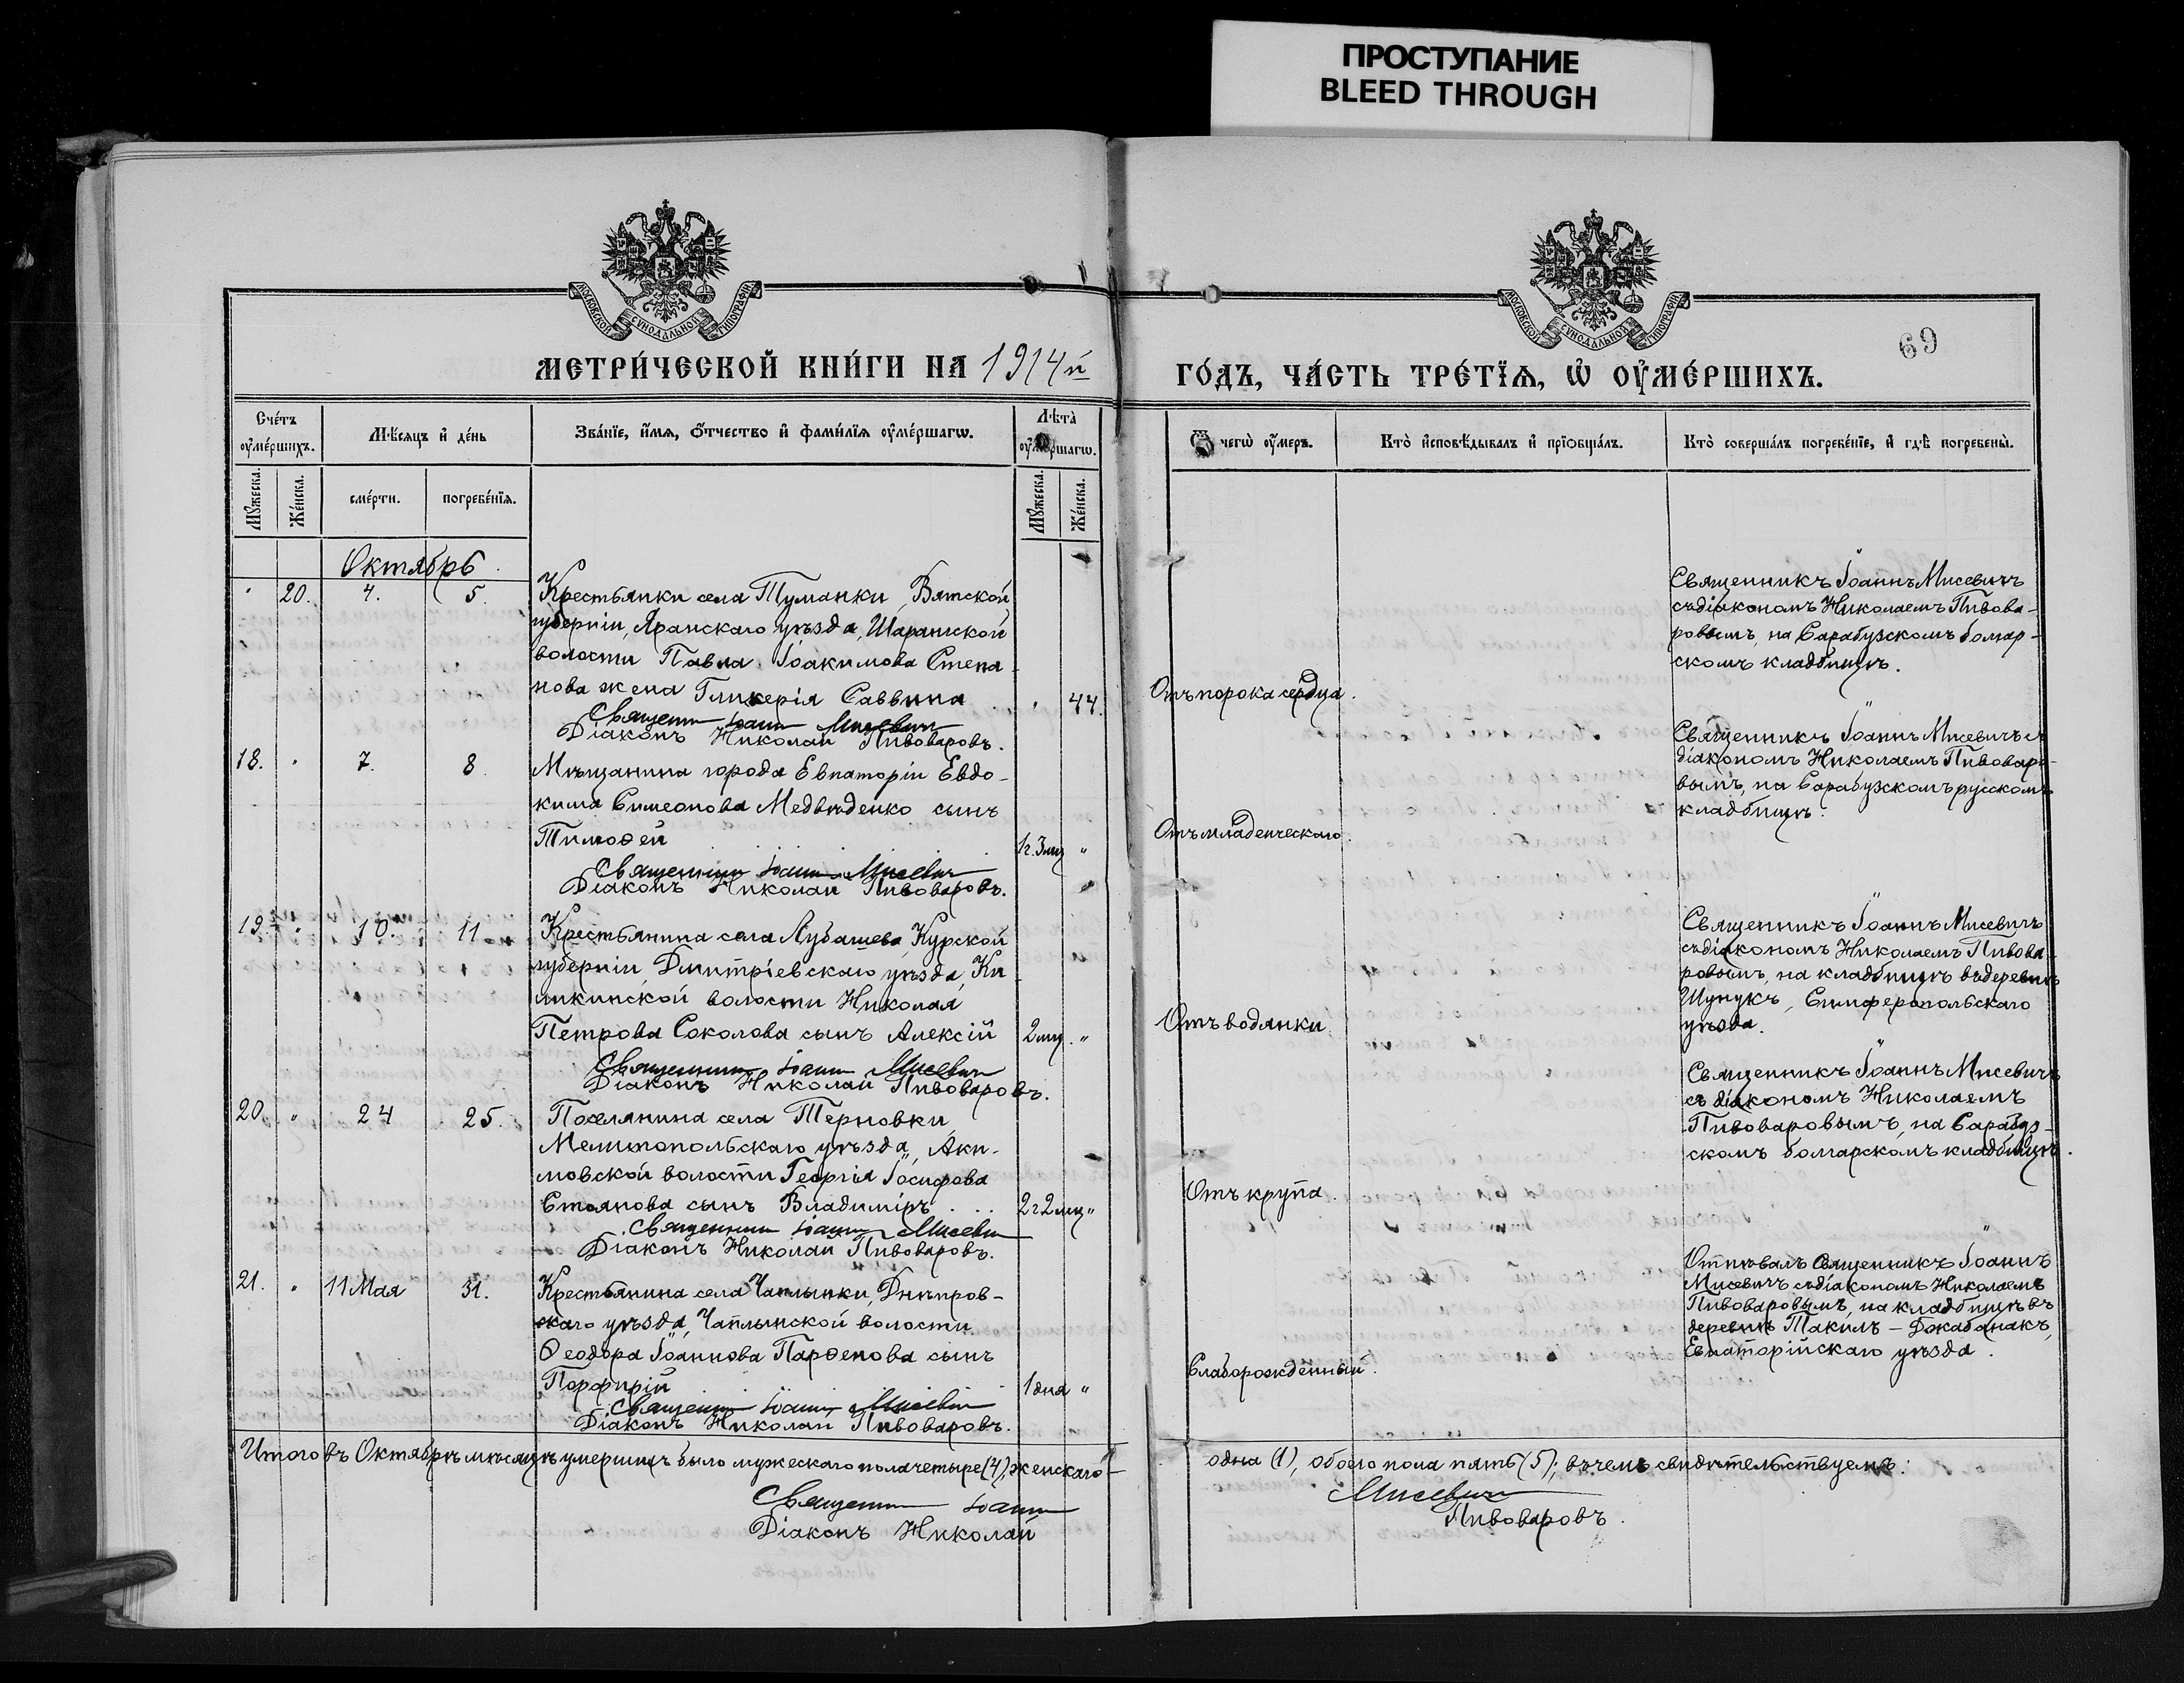 ПРОСТУПАНИЕ
BLEED THROUGH
МОСКОВСКОЙ СѴНОДАЛЬНОЙ ТИПОГРАФІИ
МОСКОВСКОЙ СѴНОДАЛЬНОЙ ТИПОГРАФІИ
69
МЕТРИ́ЧЕСКОЙ КНИ́ГИ НА 1914й
ГО́ДЪ, ЧА́СТЬ ТРЕ́ТЇѦ, Ѡ҆ ОУ҆МЕ́РШИХЪ.
Сче́тъ оу҆ме́ршихъ.
Мѣ́сѧцъ и҆ де́нь
Зва́нїе, и҆́мѧ, ѻ҆́тчество и҆ фами́лїѧ оу҆ме́ршагѡ.
Лѣ́та оу҆ме́ршагѡ.
Ѿ чегѡ̀ оу҆́меръ.
Кто̀ и҆сповѣ́дывалъ и҆ прїѡбща́лъ.
Кто̀ соверша́лъ погребе́нїе, и҆ гдѣ̀ погребены̀.
Мꙋ́жеска.
Же́нска.
сме́рти.
погребе́нїѧ.
Мꙋ́жеска.
Же́нска.
Октябрь.
" 20. 4. 5.
Крестьянки села Туманки, Вятской
губерніи, Яранскаго уѣзда, Шарангской
волости Павла Іоакимова Степа-
нова жена Гликерія Саввина " 44.
Священник Іоанн Мисевич
Діаконъ Николай Пивоваровъ.
Отъ порока сердца.
Священникъ Іоаннъ Мисевичъ
съ діакономъ Николаемъ Пивова-
ровымъ, на Сарабузскомъ болгар-
скомъ кладбищѣ.
18. " 7. 8.
Мѣщанина города Евпаторіи Евдо-
кима Симеонова Медвѣденко сынъ
Тимоѳей 1г. 3мц "
Священник Іоанн Мисевич
Діаконъ Николай Пивоваровъ.
Отъ младенческаго.
Священникъ Іоаннъ Мисевичъ съ
діакономъ Николаемъ Пивоваро-
вымъ, на Сарабузскомъ русскомъ
кладбищѣ.
19. " 10. 11.
Крестьянина села Лубашева, Курской
губерніи, Дмитріевскаго уѣзда, Ки-
ликинской волости Николая
Петрова Соколова сынъ Алексій 2мц. "
Священник Іоанн Мисевич
Діаконъ Николай Пивоваровъ.
Отъ водянки.
Священникъ Іоаннъ Мисевичъ
съ діакономъ Николаемъ Пивова-
ровымъ, на кладбищѣ въ деревнѣ
Шунукъ, Симферопольскаго
уѣзда.
20. " 24 25.
Поселянина села Терновки,
Мелитопольскаго уѣзда, Аки-
мовской волости Георгія Іосифова
Стоянова сынъ Владиміръ 2г 2мц "
Священник Іоанн Мисевич
Діаконъ Николай Пивоваровъ.
Отъ крупа.
Священникъ Іоаннъ Мисевичъ
съ діакономъ Николаемъ
Пивоваровымъ, на Сарабуз-
скомъ болгарскомъ кладбищѣ.
21. " 11 Мая 31.
Крестьянина села Чаплынки, Днѣпров-
скаго уѣзда, Чаплынской волости
Ѳеодора Іоаннова Парѳенова сынъ
Порфирій 1 дня "
Священник Іоанн Мисевич
Діаконъ Николай Пивоваровъ.
Слаборожденный.
Отпѣвалъ Священникъ Іоаннъ
Мисевичъ съ діакономъ Николаемъ
Пивоваровымъ, на кладбищѣ въ
деревнѣ Такилъ – Джабанакъ,
Евпаторійскаго уѣзда.
Итого въ Октябрѣ мѣсяцѣ умершихъ было мужескаго пола четыре (4), женскаго –
одна (1), обоего пола пять (5); въ чемъ свидѣтельствуемъ:
Священник Іоанн Мисевич
Діаконъ Николай Пивоваровъ.